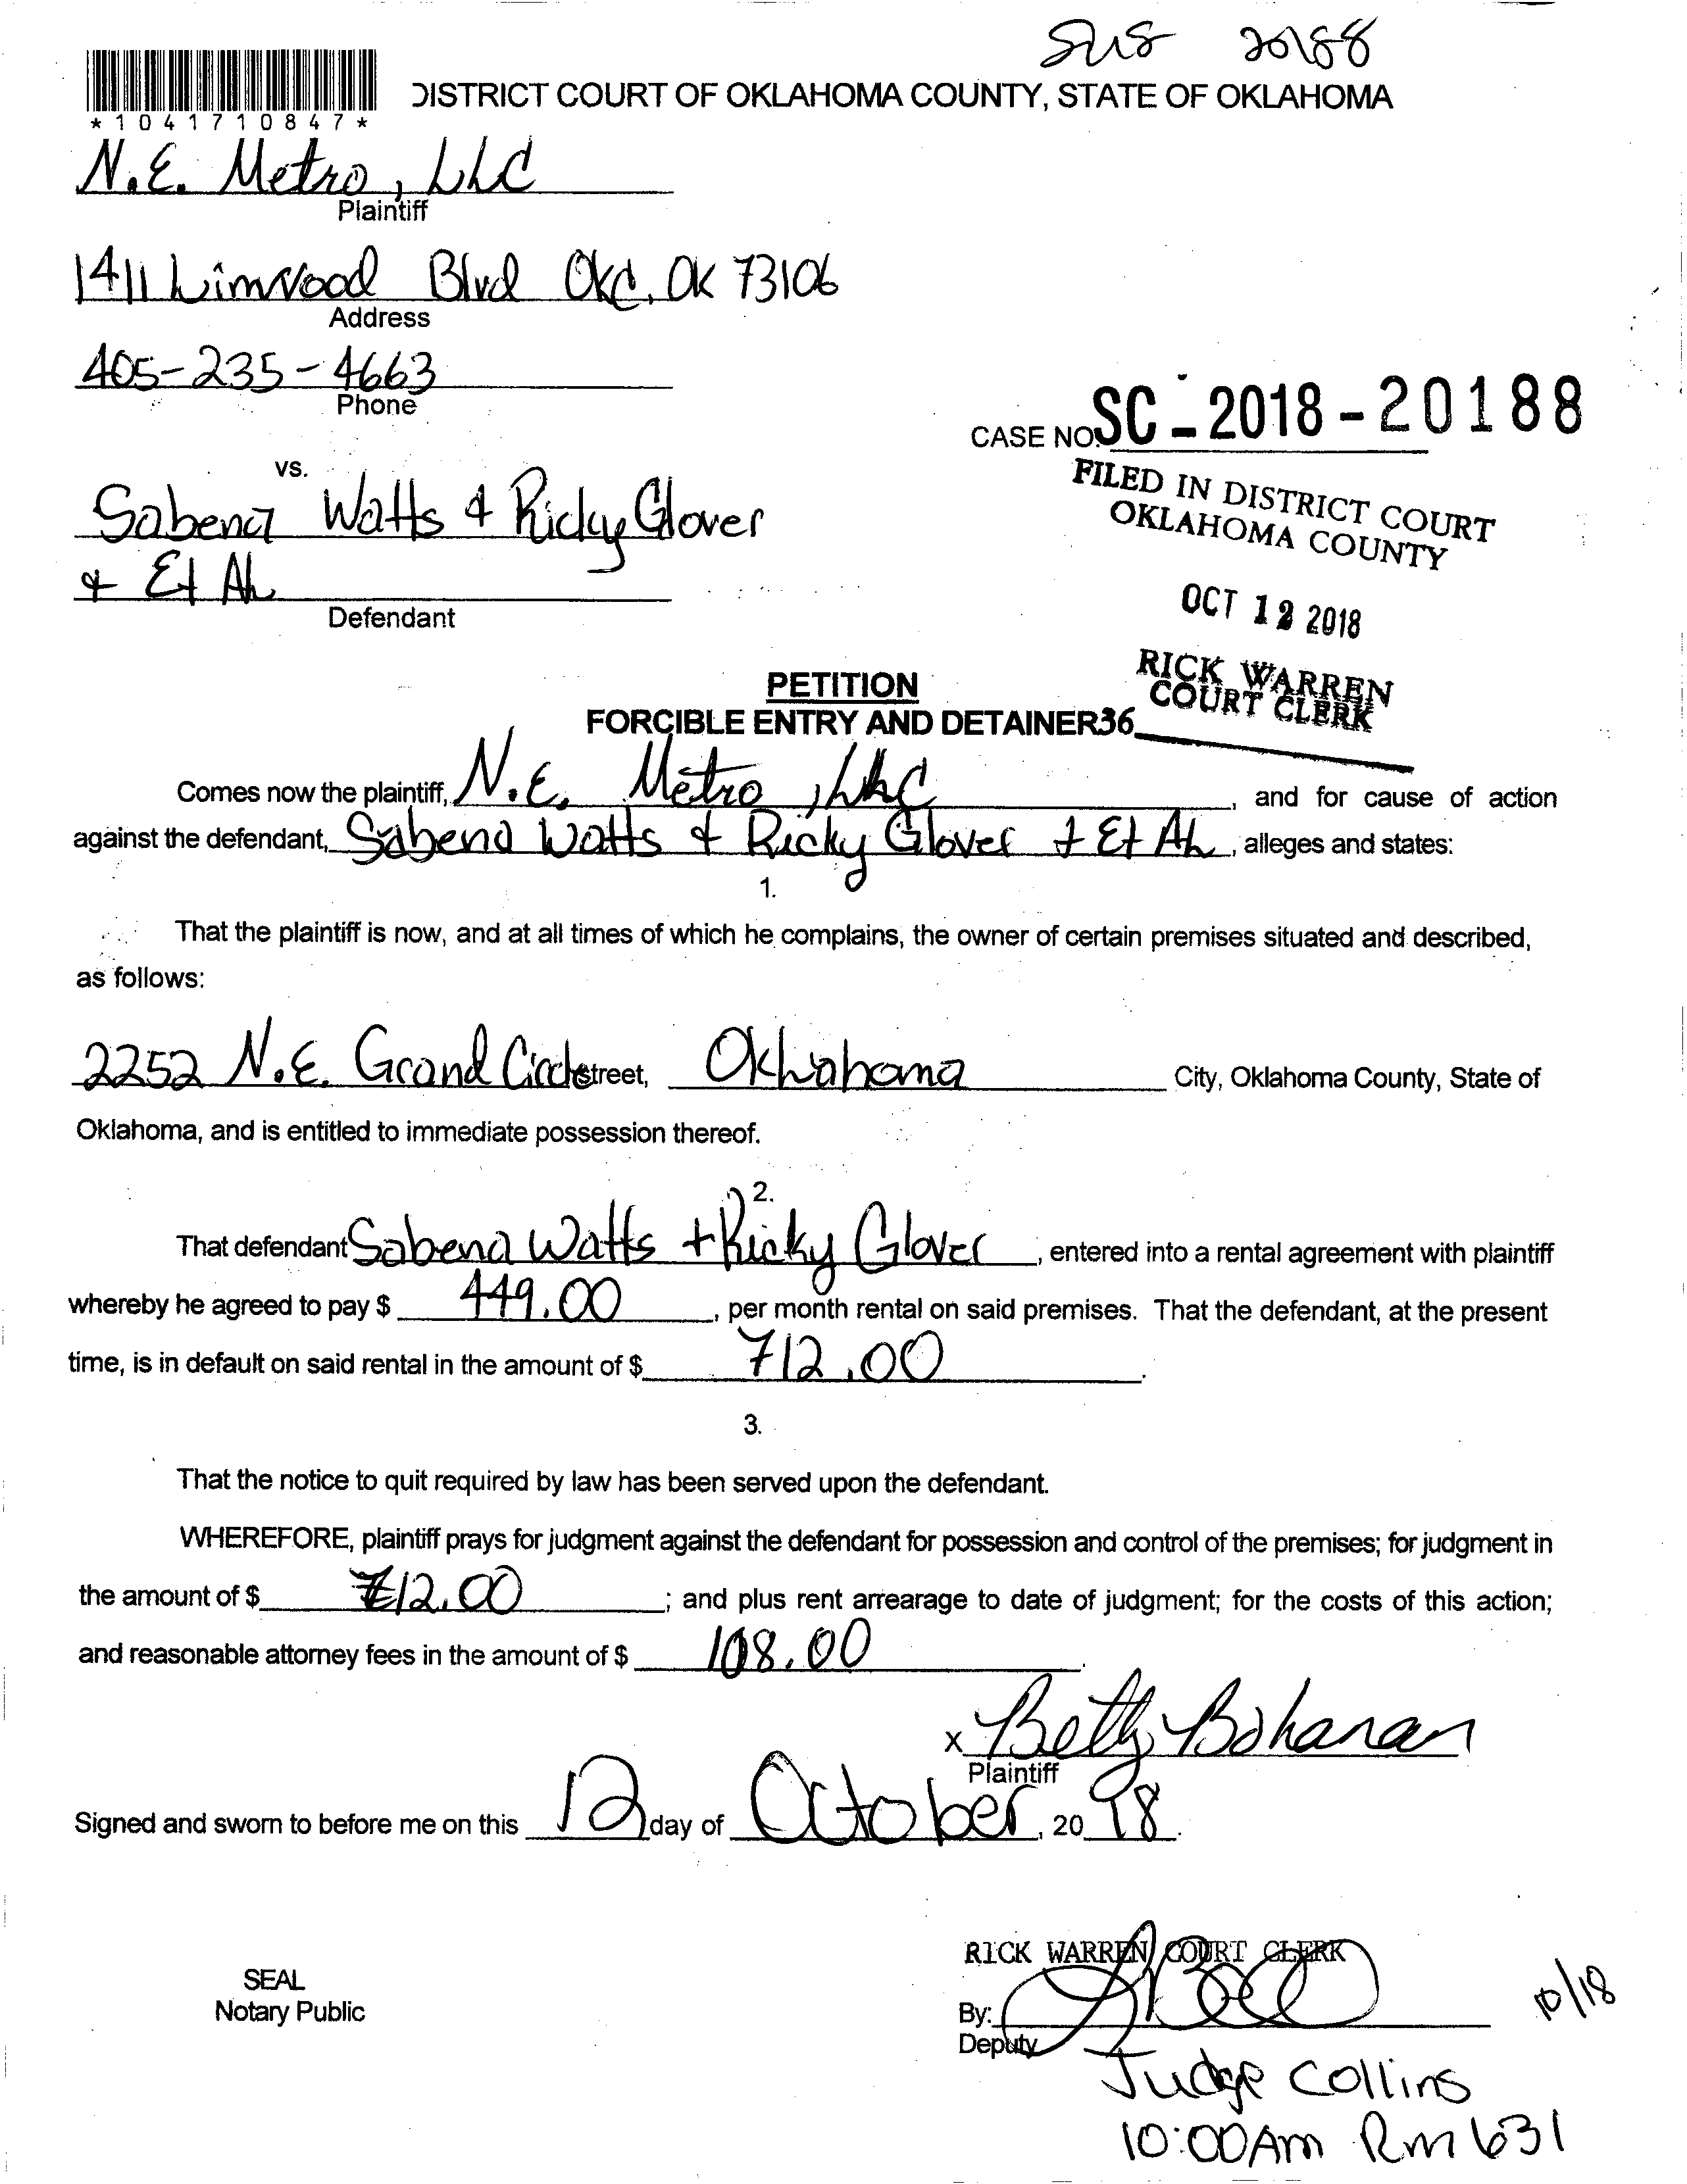 20188
DISTRICT COURT OF OKLAHOMA COUNTY, STATE OF OKLAHOMA
*1041710847*
N.E. Metro, LLC
Plaintiff
1411 Linwood Blvd OKC, OK 73106
Address
405-235-4663
Phone
CASE NO. SC-2018-20188
vs.
FILED IN DISTRICT COURT
OKLAHOMA COUNTY
Sabena Watts & Ricky Glover
& Et AL
Defendant
OCT 12 2018
RICK WARREN
COURT CLERK
PETITION
FORCIBLE ENTRY AND DETAINER36
Comes now the plaintiff, N.E. Metro, LLC, and for cause of action
against the defendant, Sabena Watts & Ricky Glover + Et AL, alleges and states:
1.
That the plaintiff is now, and at all times of which he complains, the owner of certain premises situated and described,
as follows:
2252 N.E. Grand Circle street, Oklahoma City, Oklahoma County, State of
Oklahoma, and is entitled to immediate possession thereof.
2.
That defendant Sabena Watts + Ricky Glover, entered into a rental agreement with plaintiff
whereby he agreed to pay $ 449.00, per month rental on said premises. That the defendant, at the present
time, is in default on said rental in the amount of $ 712.00.
3.
That the notice to quit required by law has been served upon the defendant.
WHEREFORE, plaintiff prays for judgment against the defendant for possession and control of the premises; for judgment in
the amount of $ 712.00; and plus rent arrearage to date of judgment; for the costs of this action;
and reasonable attorney fees in the amount of $ 108.00.
x Betty Bohanan
Plaintiff
Signed and sworn to before me on this 12 day of October, 2018.
RICK WARREN COURT CLERK
SEAL
Notary Public
By:
Deputy
10/18
Judge Collins
10:00Am Rm 631